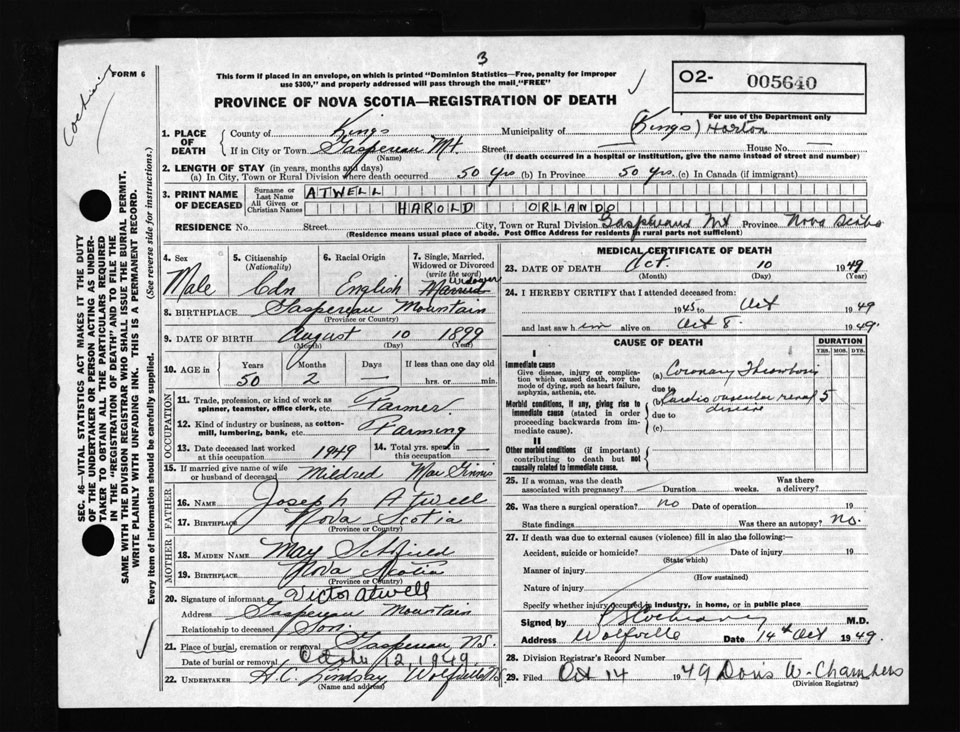 3
Cochieri
FORM 6
This form if placed in an envelope, on which is printed "Dominion Statistics—Free, penalty for improper
use $300," and properly addressed will pass through the mail "FREE"
O2- 005640
For use of the Department only
PROVINCE OF NOVA SCOTIA—REGISTRATION OF DEATH
1. PLACE OF DEATH
County of Kings Municipality of (Kings) Horton
If in City or Town Gaspereau Mt. Street House No. —
(Name) (If death occurred in a hospital or institution, give the name instead of street and number)
2. LENGTH OF STAY (in years, months and days)
(a) In City, Town or Rural Division where death occurred 50 Yrs (b) In Province 50 Yrs. (c) In Canada (if immigrant)
3. PRINT NAME OF DECEASED
Surname or Last Name ATWELL
All Given or Christian Names HAROLD ORLANDO
RESIDENCE No. Street City, Town or Rural Division Gaspereaux Mt Province Nova Scotia
(Residence means usual place of abode. Post Office Address for residents in rural parts not sufficient)
4. Sex Male
5. Citizenship (Nationality) Cdn
6. Racial Origin English
7. Single, Married, Widowed or Divorced (write the word) Married Widower
8. BIRTHPLACE Gaspereau Mountain
(Province or Country)
9. DATE OF BIRTH August 10 1899
(Month) (Day) (Year)
10. AGE in Years 50 Months 2 Days — If less than one day old hrs. or min.
OCCUPATION
11. Trade, profession, or kind of work as spinner, teamster, office clerk, etc. Farmer.
12. Kind of industry or business, as cotton-mill, lumbering, bank, etc. Farming
13. Date deceased last worked at this occupation 1949
14. Total yrs. spent in this occupation —
15. If married give name of wife or husband of deceased Mildred MacGinnis
FATHER
16. Name Joseph Atwell
17. Birthplace Nova Scotia
(Province or Country)
MOTHER
18. Maiden Name May Schofield
19. Birthplace Nova Scotia
(Province or Country)
20. Signature of informant Victor Atwell
Address Gaspereau Mountain
Relationship to deceased Son.
21. Place of burial, cremation or removal Gaspereau N.S.
Date of burial or removal October 12, 1949
22. UNDERTAKER H.C. Lindsay Wolfville N.S
(Name and address)
MEDICAL CERTIFICATE OF DEATH
23. DATE OF DEATH Oct 10 1949
(Month) (Day) (Year)
24. I HEREBY CERTIFY that I attended deceased from:
1945 to Oct 1949
and last saw him alive on Oct 8. 1949.
CAUSE OF DEATH
DURATION
YRS. MOS. DYS.
I
Immediate cause
Give disease, injury or complication which caused death, NOT the mode of dying, such as heart failure, asphyxia, asthenia, etc.
(a) Coronary Thrombosis
due to
Morbid conditions, if any, giving rise to immediate cause (stated in order proceeding backwards from immediate cause).
(b) Cardio vascular renal disease 5
due to
(c)
II
Other morbid conditions (if important) contributing to death but not causally related to immediate cause.
25. If a woman, was the death associated with pregnancy? — Duration weeks. Was there a delivery?
26. Was there a surgical operation? no Date of operation 19
State findings Was there an autopsy? no.
27. If death was due to external causes (violence) fill in also the following:—
Accident, suicide or homicide? Date of injury 19
(State which)
Manner of injury
(How sustained)
Nature of injury
Specify whether injury occurred in industry, in home, or in public place
Signed by M.D.
Address Wolfville Date 14th Oct 1949.
28. Division Registrar's Record Number
29. Filed Oct 14 1949 Doris W. Chambers
(Division Registrar)
SEC. 46—VITAL STATISTICS ACT MAKES IT THE DUTY
OF THE UNDERTAKER OR PERSON ACTING AS UNDER-
TAKER TO OBTAIN ALL THE PARTICULARS REQUIRED
IN THE "REGISTRATION OF DEATH" AND TO FILE THE
SAME WITH THE DIVISION REGISTRAR WHO SHALL ISSUE THE BURIAL PERMIT.
WRITE PLAINLY WITH UNFADING INK. THIS IS A PERMANENT RECORD.
Every item of information should be carefully supplied. (See reverse side for instructions.)